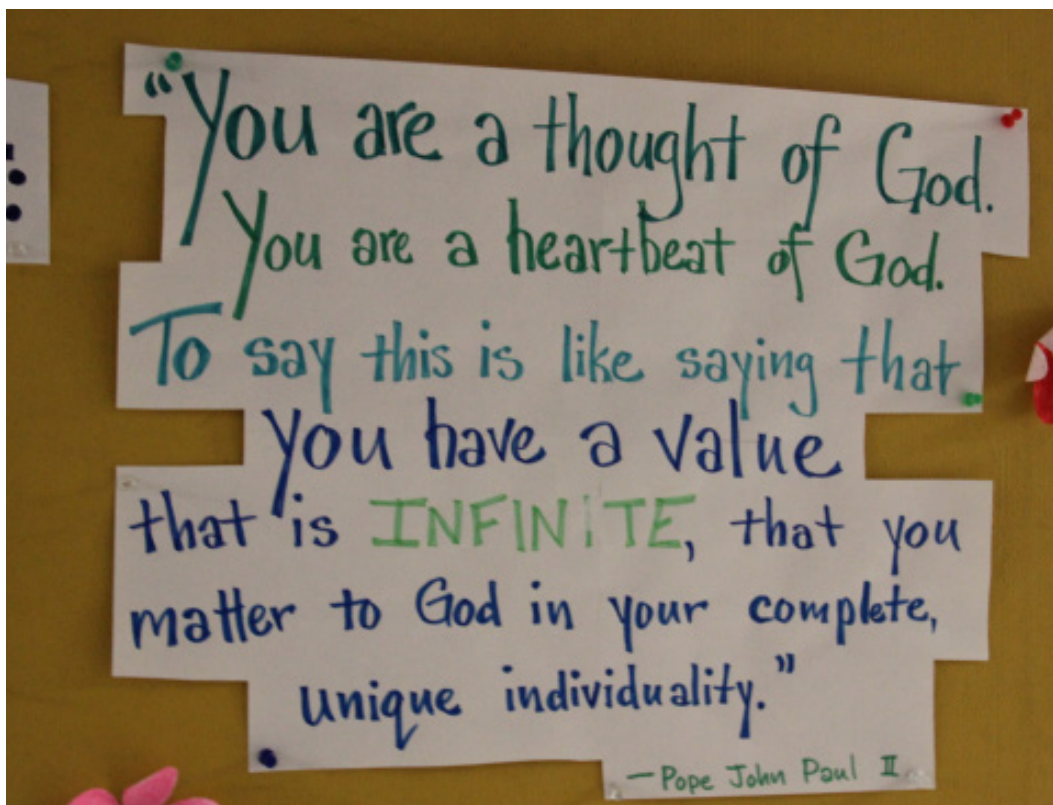 “You are a thought of God.
You are a heartbeat of God.
To say this is like saying that
you have a value
that is INFINiTE, that you
matter to God in your complete,
unique individuality.”
—Pope John Paul II